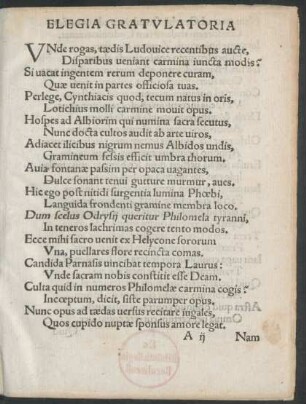 ELEGIA GRATVLATORIA
VNde rogas, tædis Ludouice recentibus aucte,
Disparibus ueniant carmina iuncta modis?
Si uacat ingentem rerum deponere curam,
Quæ uenit in partes officiosa tuas.
Perlege, Cynthiacis quod, tecum natus in oris,
Lotichius molli carmine mouit opus.
Hospes ad Albiorim qui numina sacra secutus,
Nunc docta cultos audit ab arte uiros,
Adiacet ilicibus nigrum nemus Albidos undis,
Gramineum fessis efficit umbra thorum.
Auia fontanæ passim per opaca uagantes,
Dulce sonant tenui gutture murmur, aues.
Hic ego post nitidi surgentia lumina Phœbi,
Languida frondenti gramine membra loco.
Dum scelus Odrysij queritur Philomela tyranni,
In teneros lachrimas cogere tento modos.
Ecce mihi sacro uenit ex Helycone sororum
Vna, puellares flore recincta comas.
Candida Parnasia uincibat tempora Laurus:
Vnde sacram nobis constitit esse Deam.
Culta quid in numeros Philomelæ carmina cogis?
Inceptum, dicit, siste parumper opus.
Nunc opus ad tædas uersus recitare iugales,
Quos cupido nuptæ sponsus amore legat.
A ij Nam